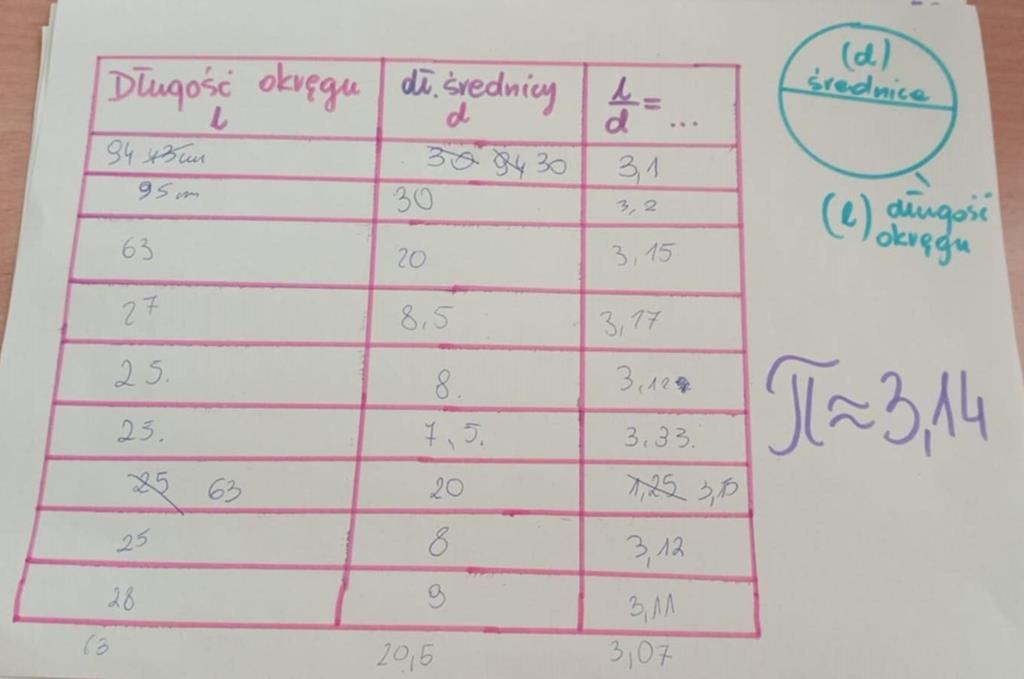 Długość okręgu l dł. średnicy d l/d = ...
94 30 3,1
95 cm 30 3,2
63 20 3,15
27 8,5 3,17
25. 8. 3,12
25. 7,5. 3.33.
25 63 20 1,25 3,15
25 8 3,12
28 9 3,11
63 20,5 3,07
(d)
średnica
(l) długość
okręgu
π≈3,14